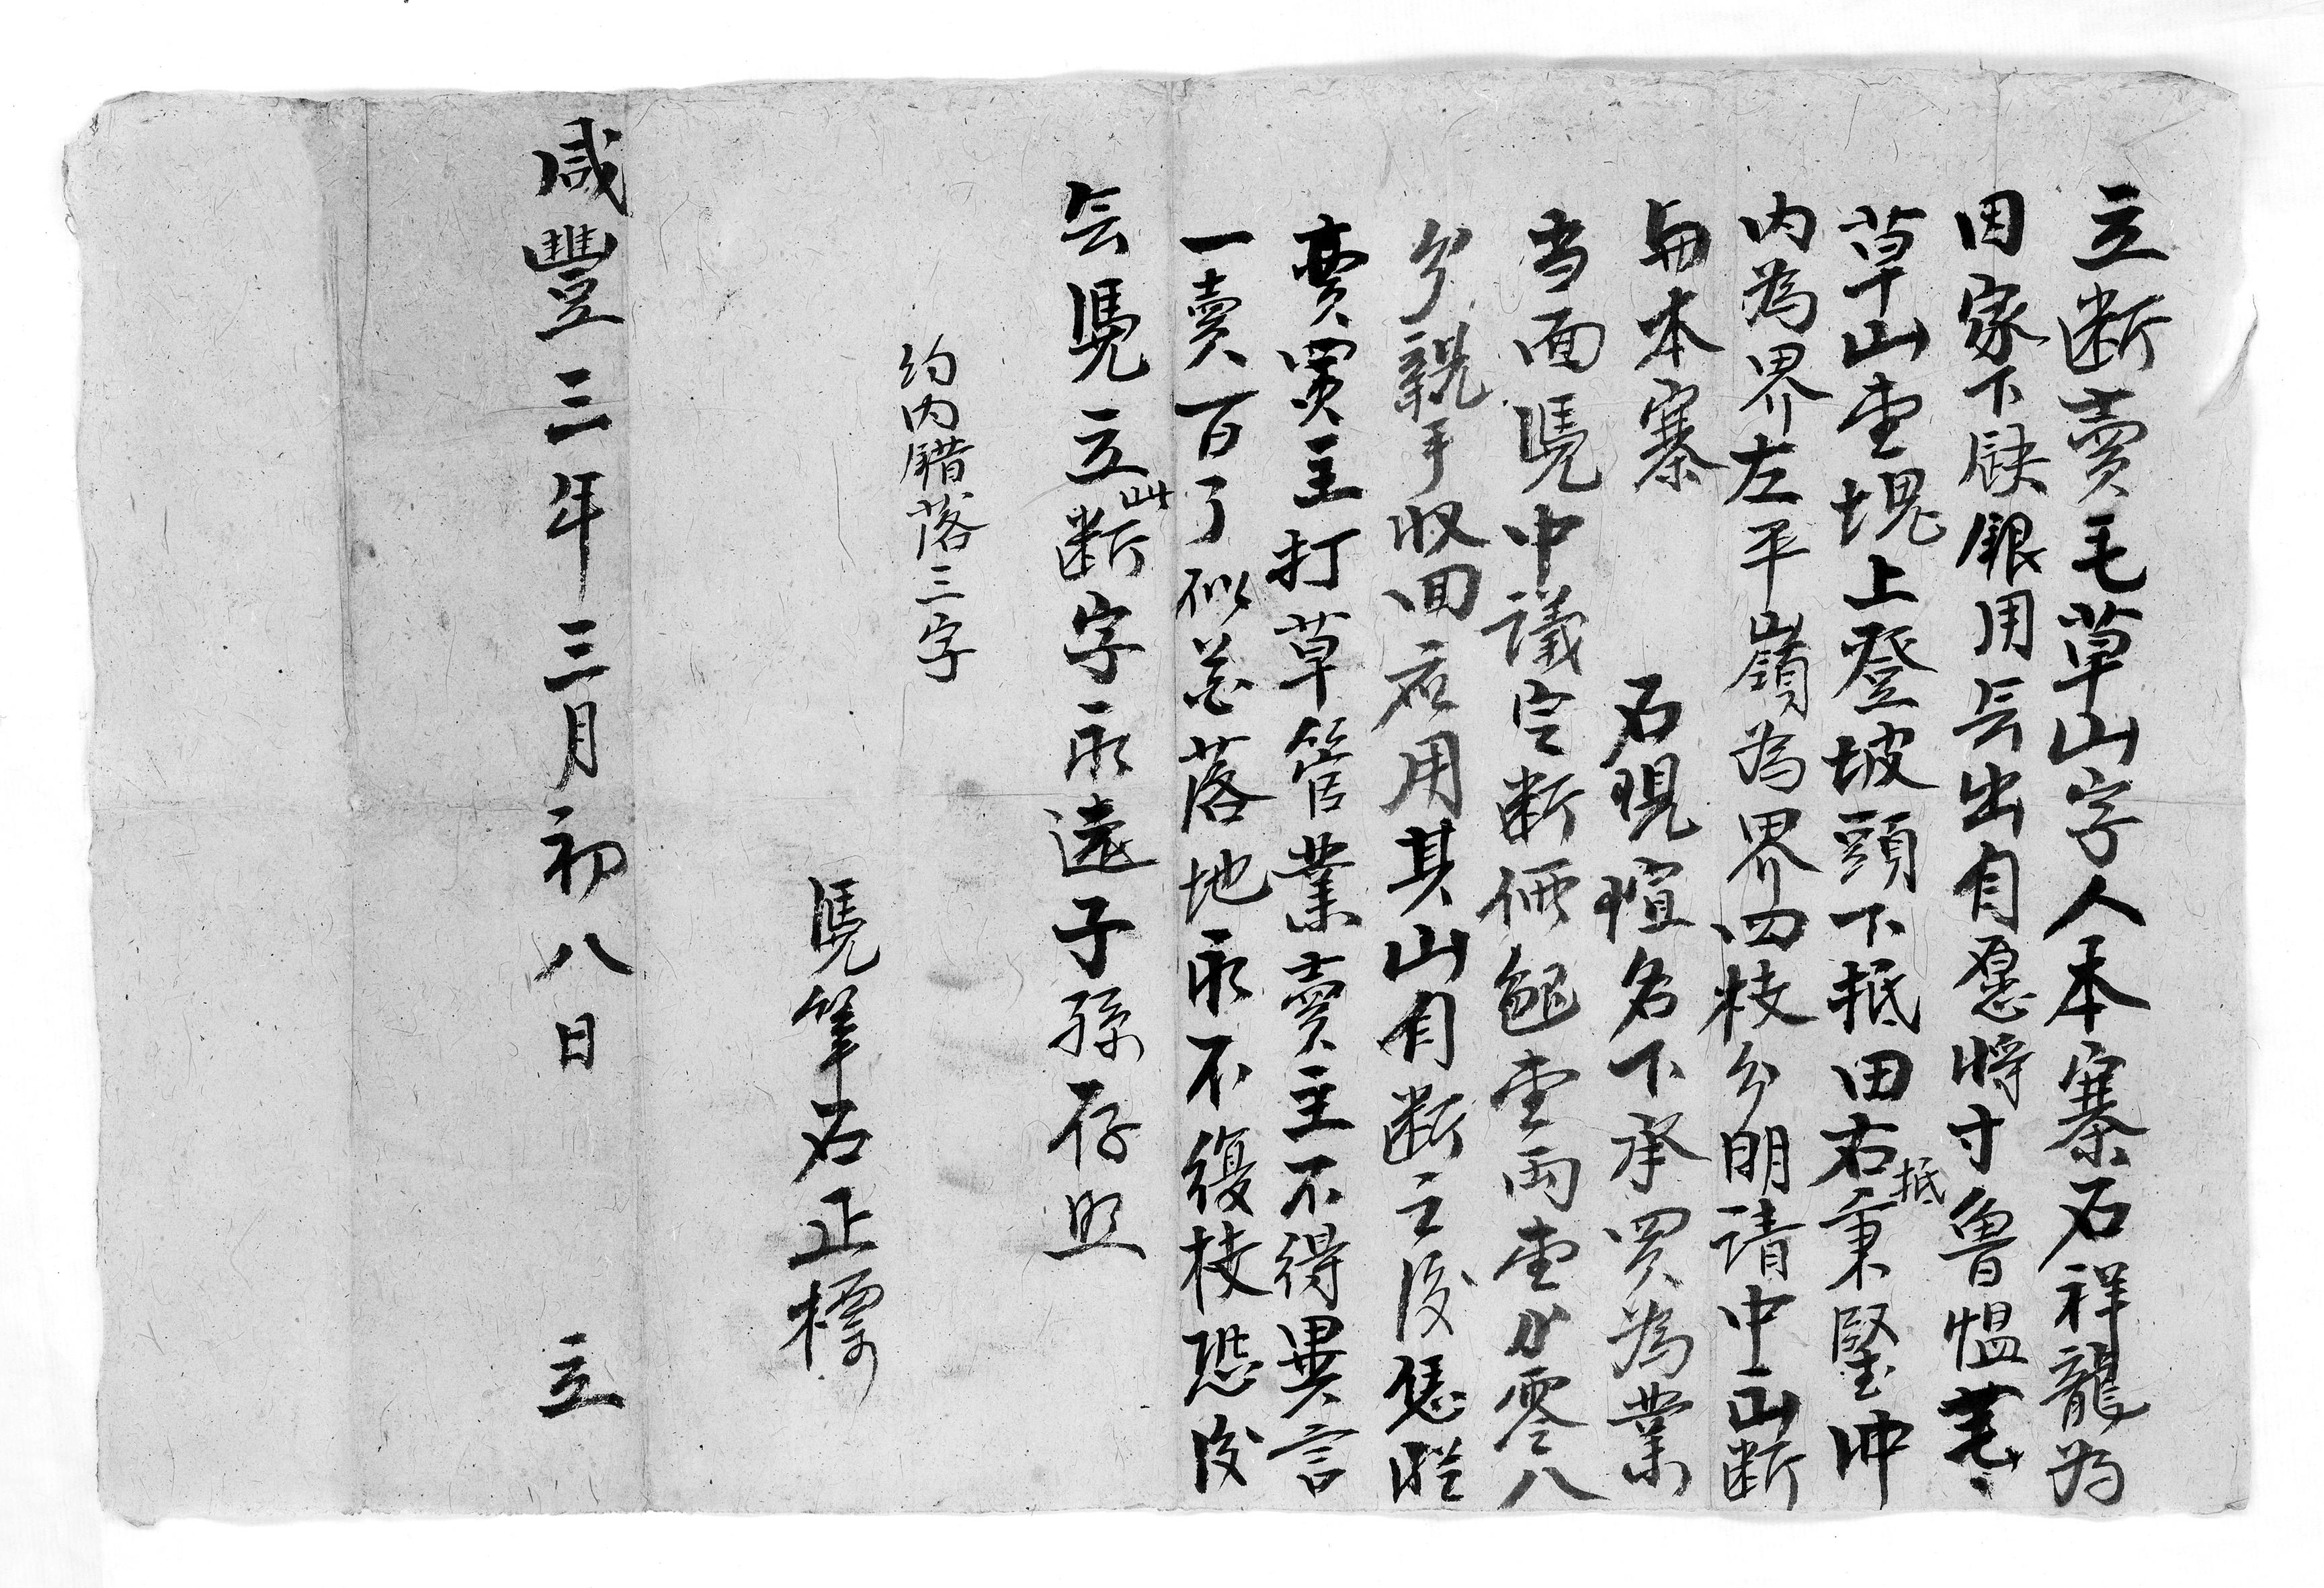 立断賣毛草山字人本寨石祥龍为
因家下缺銀用无出自愿将寸魯愠芼
草山壹塊上登坡頭下抵田右抵東墾冲
内為界左平嶺為界四枝分明請中山断
与本寨　石現暄名下承買為業
当面凴中議定断價銀壹両壹分零八
分親手收回应用其山自断之後凴從
賣買主打草管業賣主不得異言
一賣百了似花落地永不復枝恐後
无凴立此断字永遠子孫存照
约内錯落三字
凴筆石正標
咸豐三年三月初八日　立